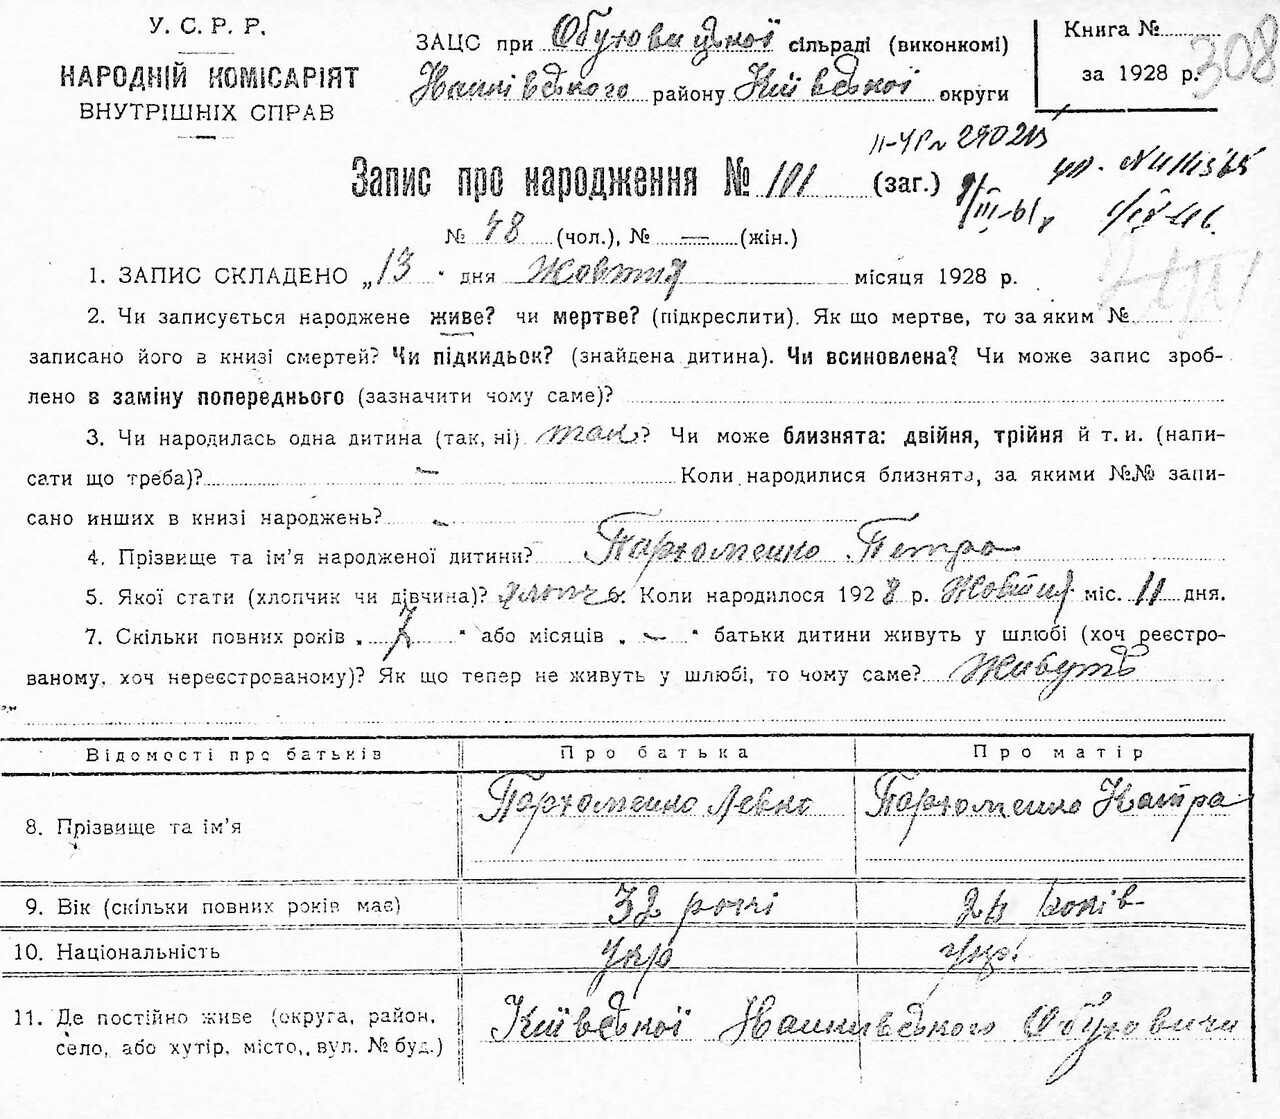 У. С. Р. Р.
НАРОДНІЙ КОМІСАРІЯТ
ВНУТРІШНІХ СПРАВ
ЗАЦС при Обуховицької сільраді (виконкомі)
району Київської округи
Книга №
за 1928 р.
308
Запис про народження № 101 (заг.)
№ 48 (чол.), № — (жін.)
1. ЗАПИС СКЛАДЕНО „13" дня Жовтня місяця 1928 р.
2. Чи записується народжене живе? чи мертве? (підкреслити). Як що мертве, то за яким №
записано його в книзі смертей? Чи підкидьок? (знайдена дитина). Чи всиновлена? Чи може запис зроб-
лено в заміну попереднього (зазначити чому саме)?
3. Чи народилась одна дитина (так, ні) так? Чи може близнята: двійня, трійня й т. и. (напи-
сати що треба)? — Коли народилися близнята, за якими №№ запи-
сано инших в книзі народжень? —
4. Прізвище та ім'я народженої дитини? Пархоменко Петро
5. Якої стати (хлопчик чи дівчина)? хлопч 6. Коли народилося 1928 р. Жовтня міс. 11 дня.
7. Скільки повних років „ 7 " або місяців „ — " батьки дитини живуть у шлюбі (хоч реєстро-
ваному, хоч нереєстрованому)? Як що тепер не живуть у шлюбі, то чому саме? Живуть
Відомості про батьків Про батька Про матір
8. Прізвище та ім'я Пархоменко Левко Пархоменко Катра
9. Вік (скільки повних років має) 32 років
10. Національність укр укр.
11. Де постійно живе (округа, район,
село, або хутір, місто, вул. № буд.) Київської Обуховичи